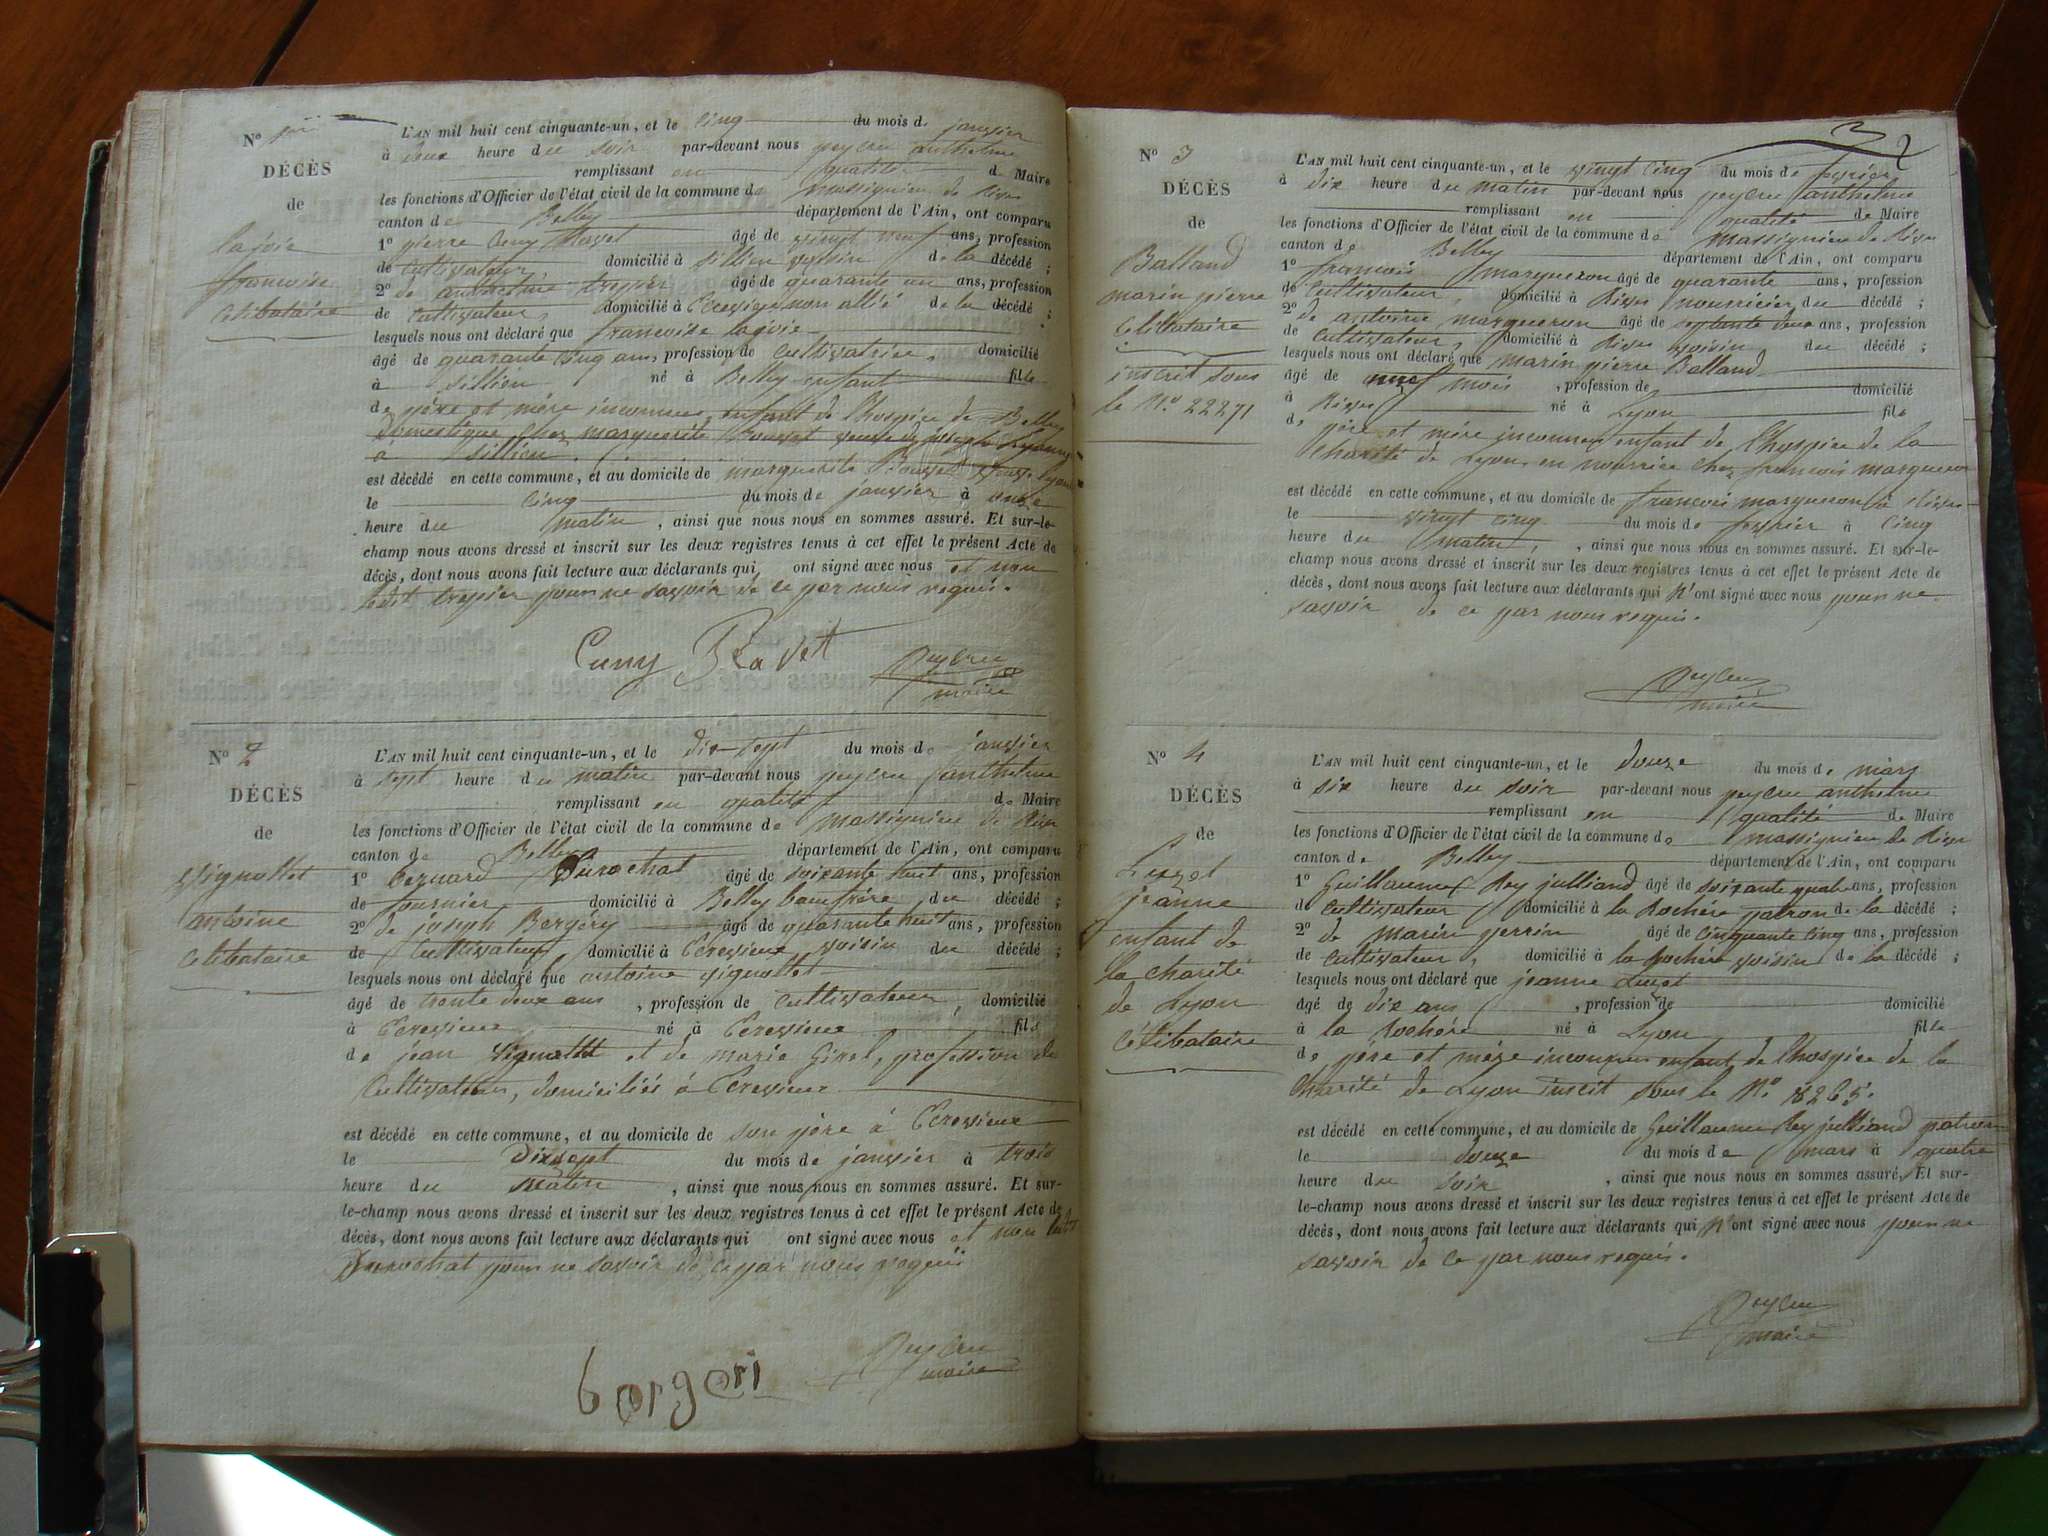 N° 1er
DÉCÈS
de
lajoie
francoise
célibataire
L'AN mil huit cent cinquante-un, et le cinq du mois de janvier
à deux heure du soir par-devant nous peycru anthelme
remplissant en qualité de Maire
les fonctions d'Officier de l'état civil de la commune de massignieu de Rives
canton de Belley département de l'Ain, ont comparu
1° pierre Cuny âgé de vingt neuf ans, profession
de cultivateur, domicilié à sillien voisin de la décédé ;
2° de anthelme trepier âgé de quarante un ans, profession
de cultivateur, domicilié à non allié de la décédé ;
lesquels nous ont déclaré que francoise lajoie
âgé de quarante cinq ans, profession de cultivatrice, domicilié
à sillien né à Belley enfant fille
de père et mère inconnus, enfant de l'hospice de Belley
domestique chez marguerite Rousset veuve de joseph
à sillien.
est décédé en cette commune, et au domicile de marguerite Rousset veuve
le cinq du mois de janvier à onze
heure du matin, ainsi que nous nous en sommes assuré. Et sur-le-
champ nous avons dressé et inscrit sur les deux registres tenus à cet effet le présent Acte de
décès, dont nous avons fait lecture aux déclarants qui ont signé avec nous et non
ledit trepier pour ne savoir de ce par nous requis.
Cuny Ravet
Peycru
maire
N° 2
DÉCÈS
de
vignollet
antoine
célibataire
L'AN mil huit cent cinquante-un, et le dix-sept du mois de janvier
à sept heure du matin par-devant nous peycru anthelme
remplissant en qualité de Maire
les fonctions d'Officier de l'état civil de la commune de massignieu de Rives
canton de Belley département de l'Ain, ont comparu
1° bernard Durochat âgé de soixante huit ans, profession
de fournier domicilié à Belley beaufrère du décédé ;
2° de joseph Bergéry âgé de quarante huit ans, profession
de cultivateur, domicilié à Cressieux voisin du décédé ;
lesquels nous ont déclaré que antoine vignollet
âgé de trente deux ans, profession de cultivateur, domicilié
à Cressieux né à Cressieux fils
de jean vignollet et de marie Girel, profession de
cultivateur, domiciliés à Cressieux
est décédé en cette commune, et au domicile de son père à Cressieux
le Dixsept du mois de janvier à trois
heure du matin, ainsi que nous nous en sommes assuré. Et sur-
le-champ nous avons dressé et inscrit sur les deux registres tenus à cet effet le présent Acte de
décès, dont nous avons fait lecture aux déclarants qui ont signé avec nous et non ledit
Durochat pour ne savoir de ce par nous requis
bergeri
Peycru
maire
2
N° 3
DÉCÈS
de
Balland
marin pierre
célibataire
inscrit sous
le N° 22271
L'AN mil huit cent cinquante-un, et le vingt cinq du mois de fevrier
à dix heure du matin par-devant nous peycru anthelme
remplissant en qualité de Maire
les fonctions d'Officier de l'état civil de la commune de massignieu de Rives
canton de Belley département de l'Ain, ont comparu
1° francois margueron âgé de quarante ans, profession
de cultivateur, domicilié à Rives nourricier du décédé ;
2° de antoine margueron âgé de septante deux ans, profession
de cultivateur, domicilié à Rives voisin du décédé ;
lesquels nous ont déclaré que marin pierre Balland
âgé de neuf mois, profession de domicilié
à Rives né à Lyon fils
de père et mère inconnus enfant de l'hospice de la
Charité de Lyon, en nourrice chez francois margueron
est décédé en cette commune, et au domicile de francois margueron à Rives
le vingt cinq du mois de fevrier à cinq
heure du matin, ainsi que nous nous en sommes assuré. Et sur-le-
champ nous avons dressé et inscrit sur les deux registres tenus à cet effet le présent Acte de
décès, dont nous avons fait lecture aux déclarants qui n'ont signé avec nous pour ne
savoir de ce par nous requis.
Peycru
maire
N° 4
DÉCÈS
de
Luzel
jeanne
enfant de
la charité
de Lyon
célibataire
L'AN mil huit cent cinquante-un, et le douze du mois de mars
à six heure du soir par-devant nous peycru anthelme
remplissant en qualité de Maire
les fonctions d'Officier de l'état civil de la commune de massignieu de Rives
canton de Belley département de l'Ain, ont comparu
1° Guillaume Rey julliand âgé de soixante quatre ans, profession
de cultivateur domicilié à la Rochère patron de la décédé ;
2° de marin perrin âgé de cinquante cinq ans, profession
de cultivateur, domicilié à la Rochère voisin de la décédé ;
lesquels nous ont déclaré que jeanne Luzel
âgé de dix ans, profession de domicilié
à la Rochère né à Lyon fille
de père et mère inconnus enfant de l'hospice de la
Charité de Lyon inscit sous le N° 18265.
est décédé en cette commune, et au domicile de Guillaume Rey julliand patron
le douze du mois de mars à quatre
heure du soir, ainsi que nous nous en sommes assuré. Et sur-
le-champ nous avons dressé et inscrit sur les deux registres tenus à cet effet le présent Acte de
décès, dont nous avons fait lecture aux déclarants qui n'ont signé avec nous pour ne
savoir de ce par nous requis.
Peycru
maire